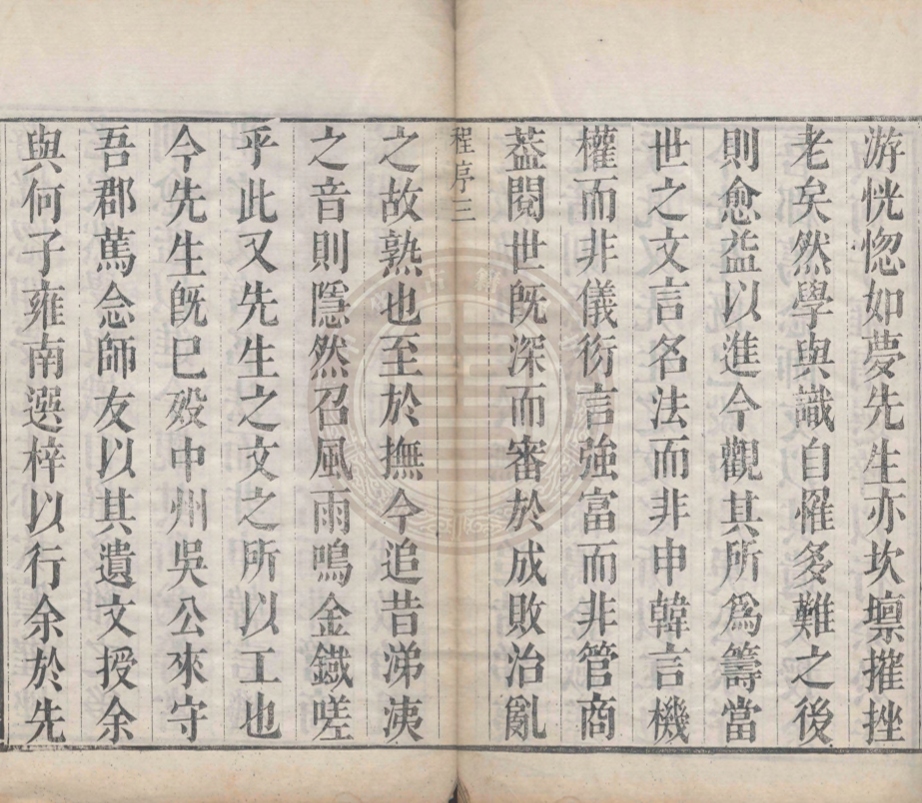 游恍惚如夢先生亦坎壈摧挫
老矣然學與識自罹多難之後
則愈益以進今觀其所爲籌當
世之文言名法而非申韓言機
權而非儀衍言強富而非管商
葢閱世旣深而審於成敗治亂
程序三
之故熟也至於撫今追昔涕洟
之音則隱然召風雨鳴金鐡嗟
乎此又先生之文之所以工也
今先生旣已歿中州吳公來守
吾郡篤念師友以其遺文授余
與何子雍南選梓以行余於先